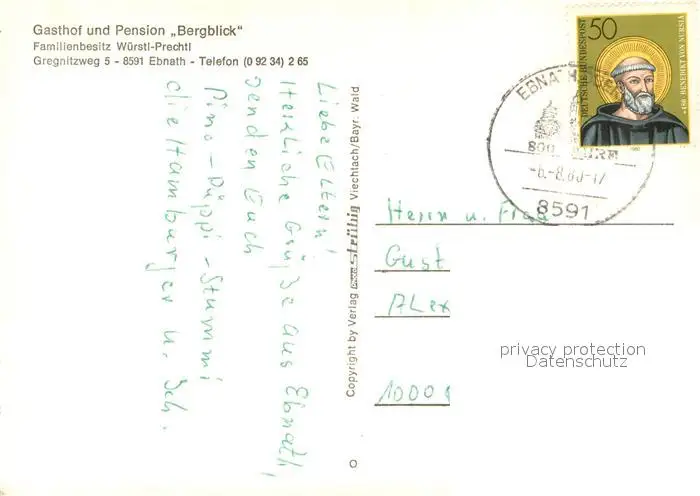 Gasthof und Pension „Bergblick“
Familienbesitz Würstl-Prechtl
Gregnitzweg 5 - 8591 Ebnath - Telefon (0 92 34) 2 65
Liebe Eltern!
Herzliche Grüße aus Ebnath,
senden Euch
Pino - Püppi - Stummi
die Hamburger u. Ich.
Copyright by Verlag Viechtach/Bayr. Wald
50
DEUTSCHE BUNDESPOST
*480 BENEDIKT VON NURSIA
1980
EBNATH
800 JAHRE
-6.-8.80-17
8591
Herrn u. Frau
Gust
Alex
1000
privacy protection
Datenschutz